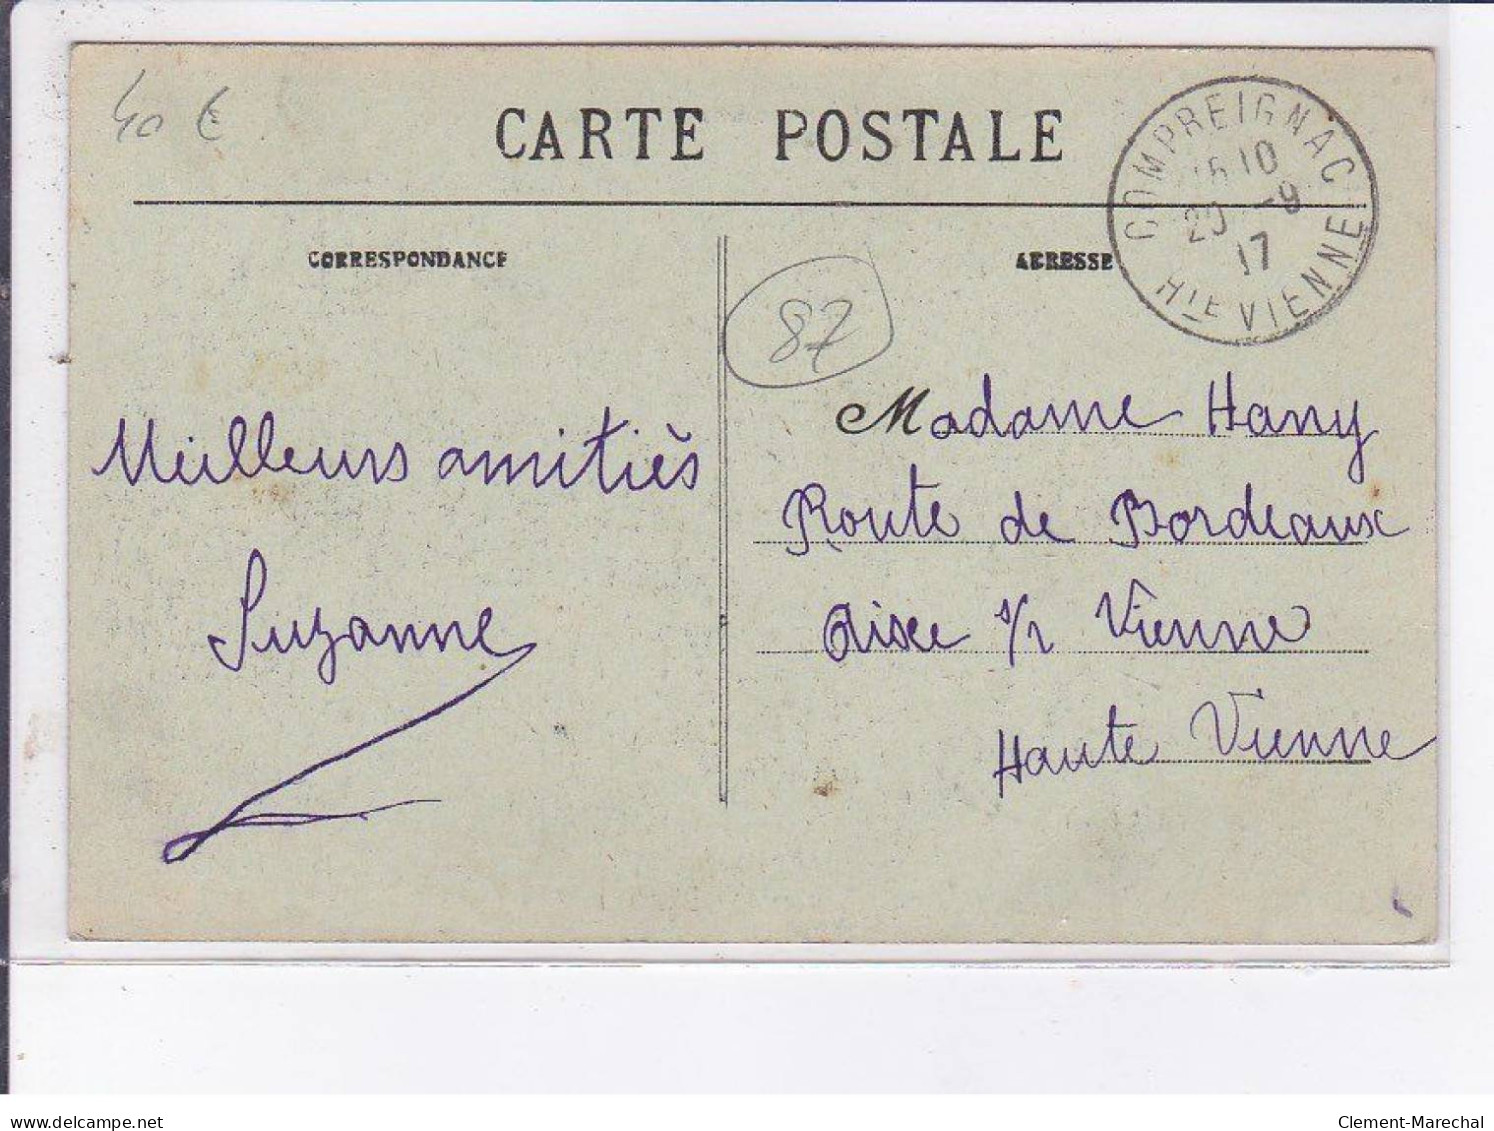 40 €
CARTE POSTALE
COMPREIGNAC
15 10
20 -9
17
HTE VIENNE
CORRESPONDANCE
ADRESSE
87
Meilleurs amitiès
Suzanne
Madame Hany
Route de Bordeaux
Aixe s/r Vienne
Haute Vienne
www.delcampe.net
Clement-Marechal